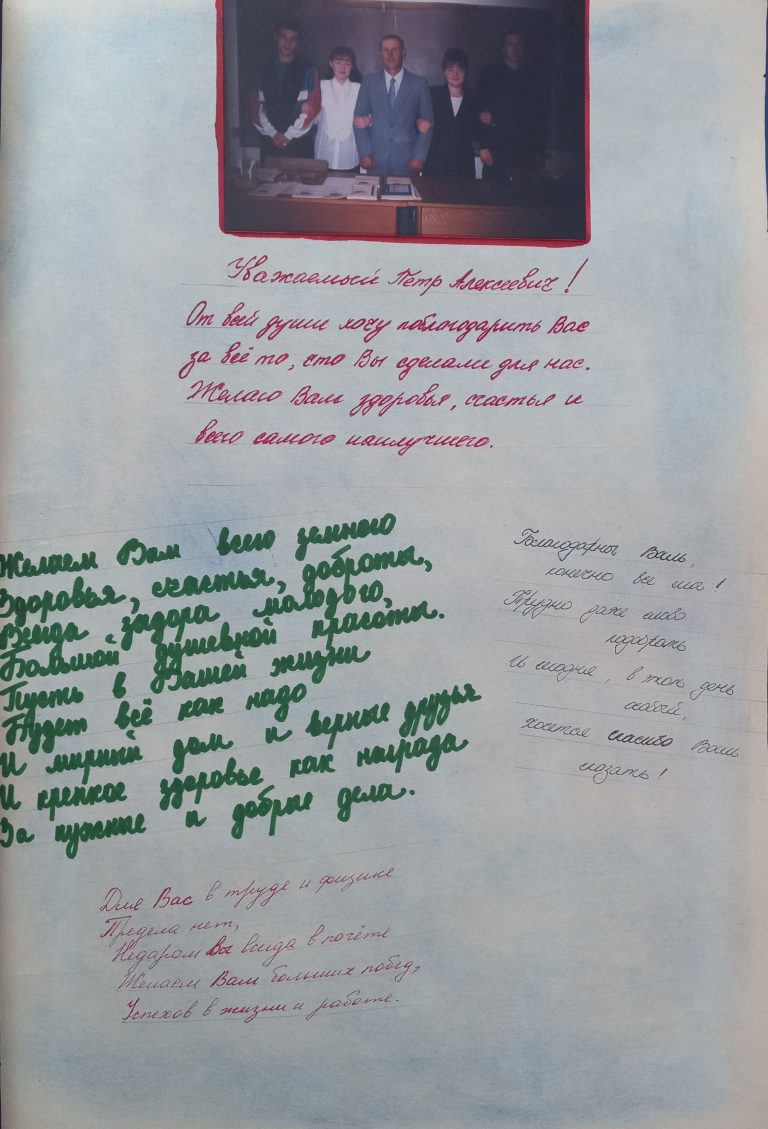 Уважаемый Петр Алексеевич!
От всей души хочу поблагодарить Вас
за всё то, что Вы сделали для нас.
Желаю Вам здоровья, счастья и
всего самого наилучшего.
Желаем Вам всего земного
Здоровья, счастья, доброты,
Всегда задора молодого,
Большой душевной красоты.
Пусть в Вашей жизни
Будет всё как надо
И мирный дом и верные друзья
И крепкое здоровье как награда
За нужные и добрые дела.
Благодарны Вам,
конечно все мы!
Трудно даже слово
подобрать
И сегодня, в этот день
особый,
хочется спасибо Вам
сказать!
Для Вас в труде и физике
Предела нет,
Недаром Вы всегда в почёте
Желаем Вам больших побед,
Успехов в жизни и работе.